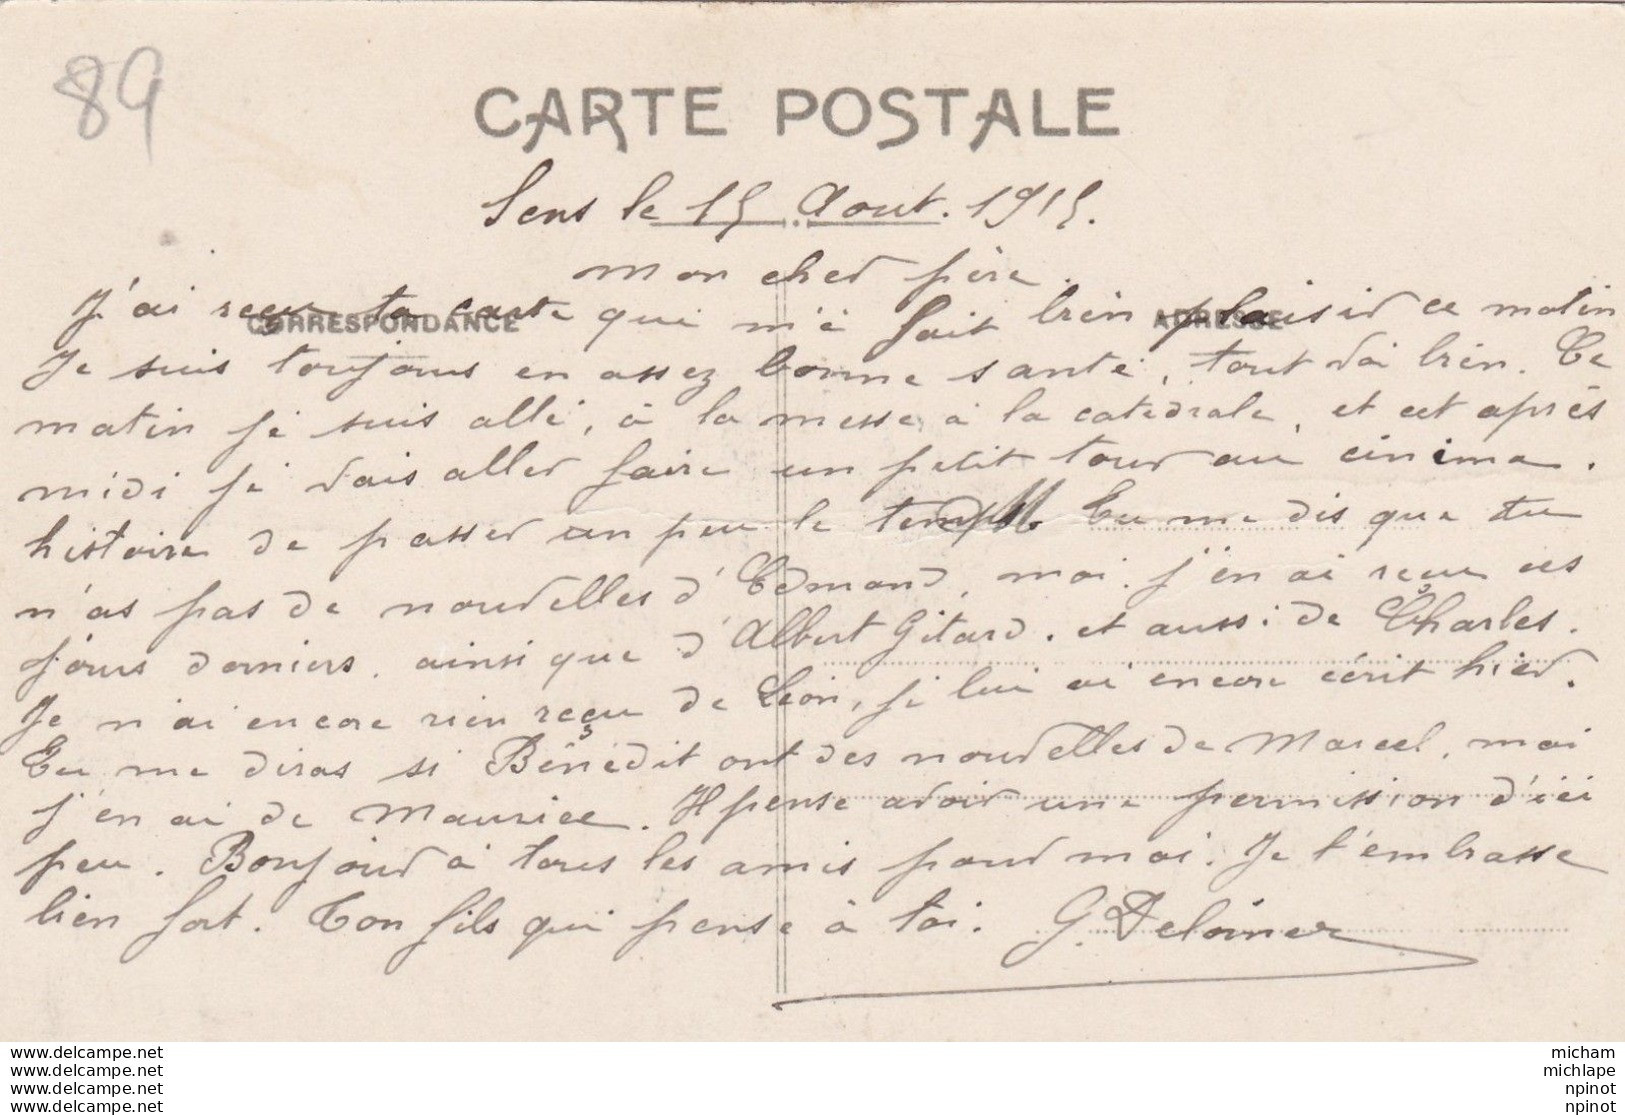 89
CARTE POSTALE
Sens le 15 Aout. 1915.
mon cher père.
CORRESPONDANCE
ADRESSE
J'ai reçu ta carte qui m'à fait bien plaisir ce matin
Je suis toujours en assez bonne santé, tout vai bien. Ce
matin je suis allé, à la messe à la catedrale, et cet après
midi je vais aller faire un petit tour au cinema.
histoire de passer un peu le temps Tu me dis que tu
n'as pas de nouvelles d'Edmond, moi j'en ai reçu ces
jours derniers, ainsi que d'Albert Gitard. et aussi de Charles.
Je n'ai encore rien reçu de Léon, je lui ai encore écrit hier.
Tu me diras si Bénédit ont des nouvelles de Marcel, moi
j'en ai de Maurice. Il pense avoir une permission d'ici
peu. Bonjour à tous les amis pour moi. Je t'embrasse
bien fort. Ton fils qui pense à toi. G.
www.delcampe.net
www.delcampe.net
www.delcampe.net
www.delcampe.net
micham
michlape
npinot
npinot